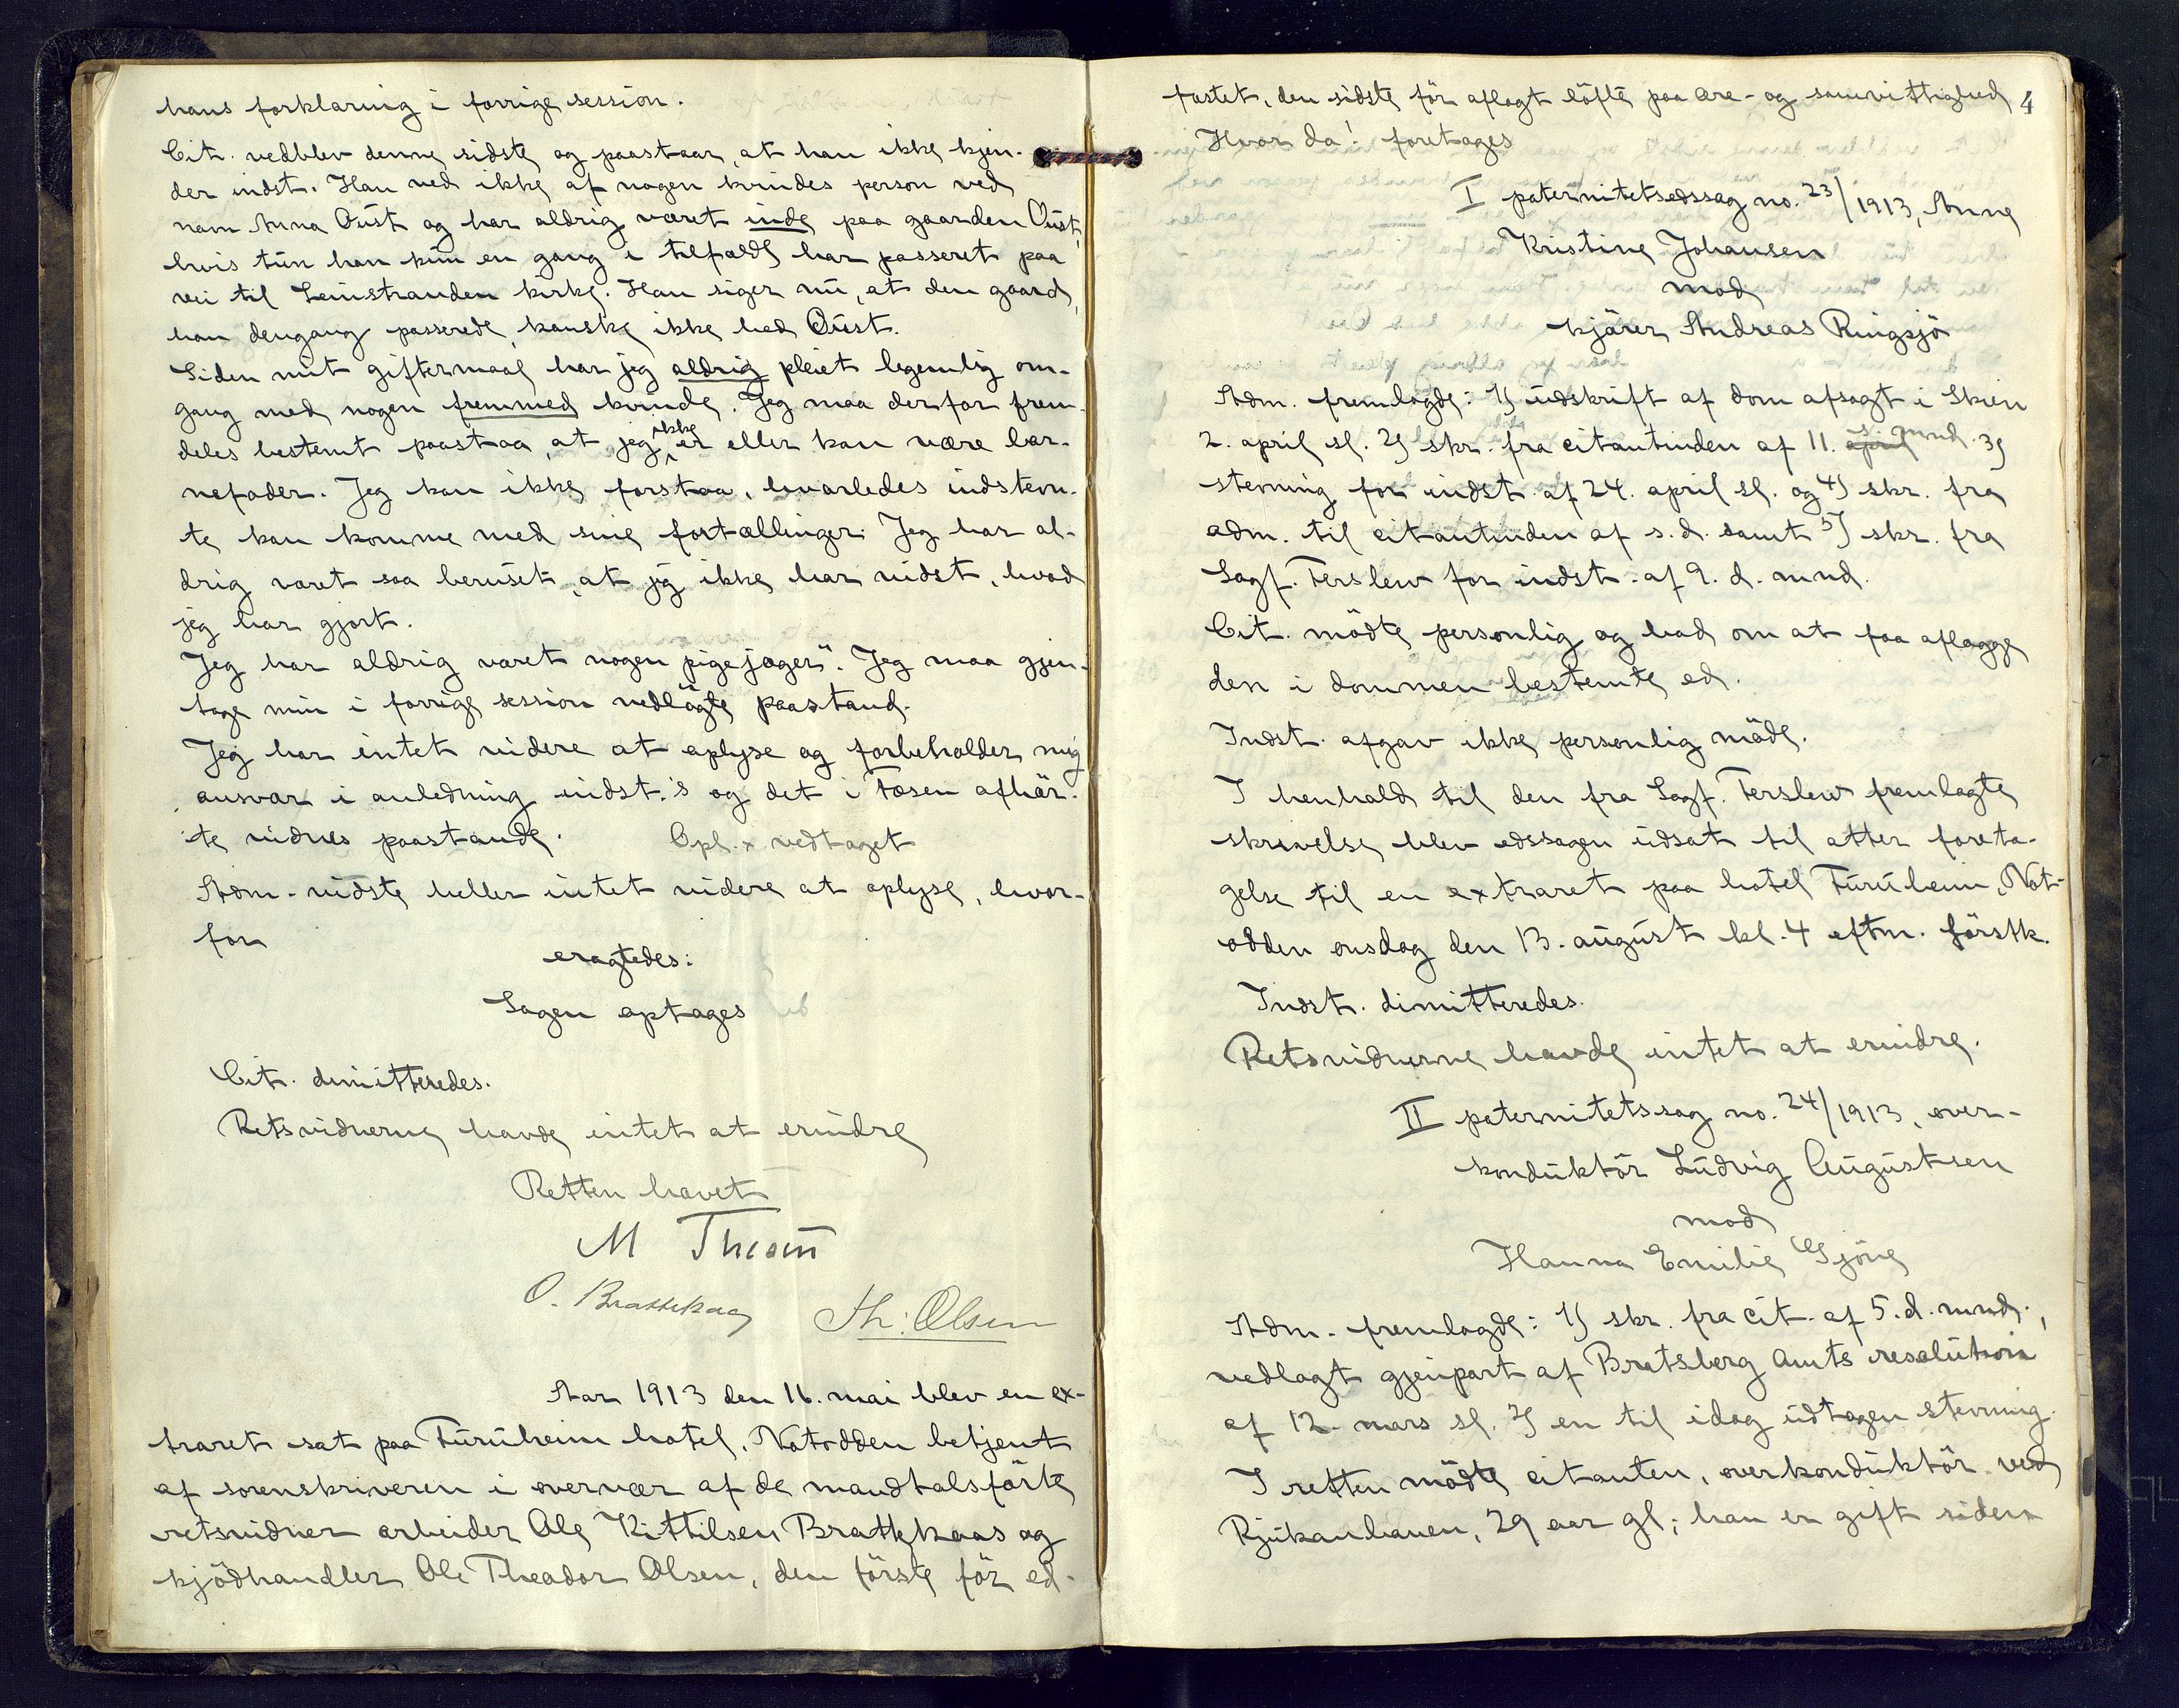 hans forklaring i forrige session.
Cit. vedblev denne sidste og paastaar, at han ikke kjen-
der indst. Han ved ikke af nogen kvindes person ved
navn Anna Oust og har aldrig været inde paa gaarden Oust,
hvis tun han kun en gang i tilfælde har passeret paa
vei til Leinstranden kirke. Han siger nu, at den gaard,
han dengang passerede, kanske ikke hed Oust.
Siden mit giftermaal har jeg aldrig pleiet legemlig om-
gang med nogen fremmed kvinde. Jeg maa derfor frem-
deles bestemt paastaa, at jeg ikke er eller kan være bar-
nefader. Jeg kan ikke forstaa, hvorledes indstevn-
te kan komme med sine fortællinger. Jeg har al-
drig været saa beruset, at jeg ikke har vidst, hvad
jeg har gjort.
Jeg har aldrig været nogen pigejæger". Jeg maa gjen-
tage min i forrige session nedlagte paastand.
Jeg har intet videre at oplyse og forbeholder mig
ansvar i anledning indst.'s og det i Fosen afhør-
te vidnes paastande. Opl. x vedtaget
Adm. vidste heller intet videre at oplyse, hvor-
for
eragtedes:
Sagen optages
Cit. dimitteredes.
Retsvidnerne havde intet at erindre
Retten hævet
M Thesen
O. Brattekaas Th: Olsen
Aar 1913 den 16. mai blev en ex-
traret sat paa Furuheim hotel, Notodden betjent
af sorenskriveren i overvær af de mandtalsførte
retsvidner arbeider Ole Kittilsen Brattekaas og
kjødhandler Ole Theodor Olsen, den første før ed-
fæstet, den sidste før aflagt løfte paa ære- og samvittighed 4
Hvor da! foretages
I paternitetsedssag no. 23/1913, Anne
Kristine Johansen
mod
kjører Andreas Ringsjø
Adm. fremlagde: 1) udskrift af dom afsagt i Skien
2. april sl. 2) skr. fra citantinden af 11. april s. mnd. 3)
stevning for indst. af 24. april sl. og 4) skr. fra
adm. til citantinden af s.d. samt 5) skr. fra
Sagf. Terslew for indst. af 9. d. mnd.
Cit. mødte personlig og bad om at faa aflægge
den i dommen bestemte ed.
Indst. afgav ikke personlig møde.
I henhold til den fra Sagf. Terslew fremlagte
skrivelse blev edssagen udsat til atter foreta-
gelse til en extraret paa hotel Furuheim, Not-
odden onsdag den 13. august kl. 4 eftm. førstk.
Indst. dimitteredes.
Retsvidnerne havde intet at erindre.
II paternitetssag no. 24/1913, over-
konduktør Ludvig Augustsen
mod
Hanna Emilie Gjöne
Adm. fremlagde: 1) skr. fra cit. af 5. d. mnd.,
vedlagt gjenpart af Bratsberg Amts resolution
af 12. mars sl. 2) en til idag udtagen stevning.
I retten mødte citanten, overkonduktør ved
Rjukanbanen, 29 aar gl; han er gift siden